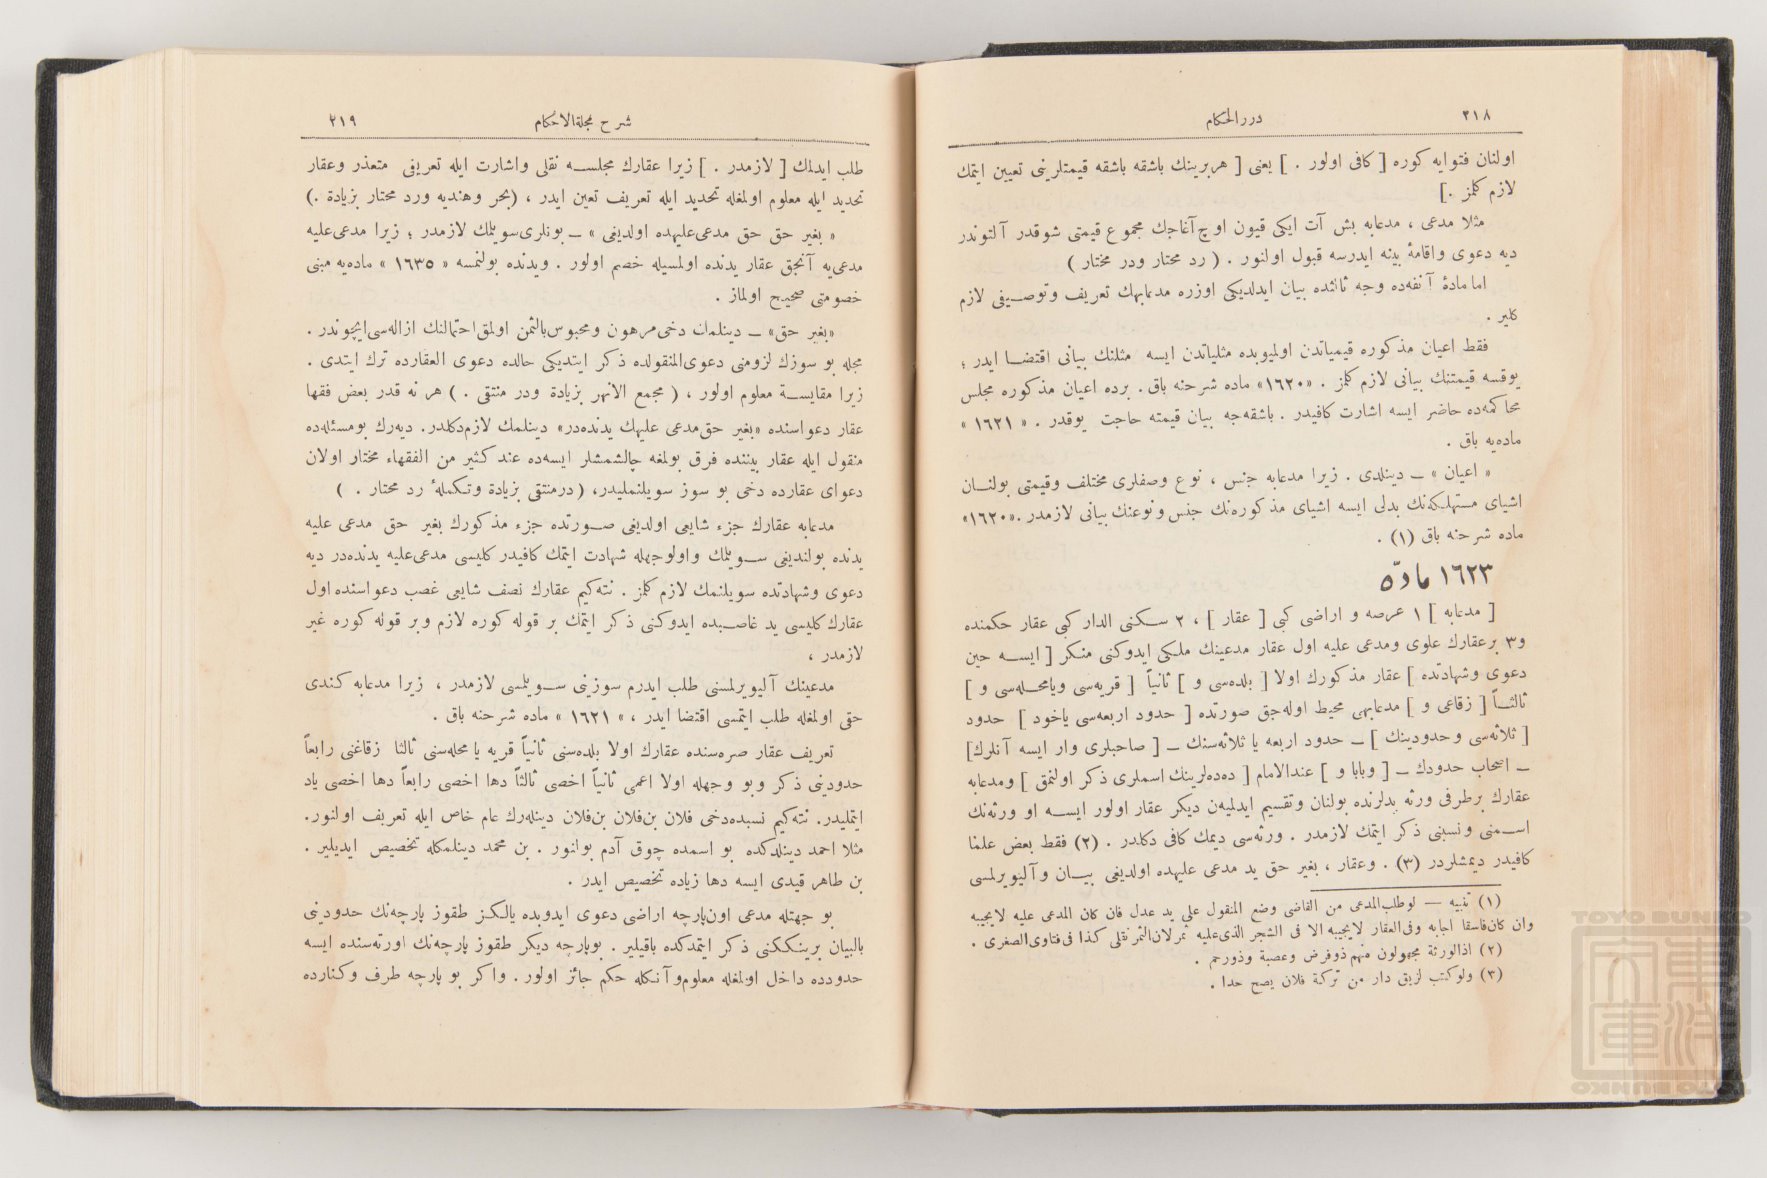 ٢١٨
دررالحكام
اولنان فتوايه كوره [ كافى اولور . ] يعنى [ هربرينك باشقه باشقه قيمتلرينى تعيين ايتمك
لازم كلمز .]
مثلا مدعى ، مدعابه بش آت ايكى قيون اوچ آغاجك مجموع قيمتى شوقدر آلتوندر
ديه دعوى واقامهٔ بينه ايدرسه قبول اولنور . ( رد محتار ودر مختار )
اما مادهٔ آنفه‌ده وجه ثالثده بيان ايدلديكى اوزره مدعابهك تعريف وتوصيفى لازم
كلير .
فقط اعيان مذكوره قيمياتدن اولميوبده مثلياتدن ايسه مثلنك بيانى اقتضا ايدر ؛
يوقسه قيمتنك بيانى لازم كلمز . «١٦٢٠» ماده شرحنه باق. برده اعيان مذكوره مجلس
محاكمه‌ده حاضر ايسه اشارت كافيدر . باشقه‌جه بيان قيمته حاجت يوقدر . « ١٦٢١ »
ماده‌يه باق .
« اعيان » ــ دينلدى . زيرا مدعابه جنس ، نوع وصفلرى مختلف وقيمتى بولنان
اشياى مستهلكه‌نك بدلى ايسه اشياى مذكوره‌نك جنس ونوعنك بيانى لازمدر .«١٦٢٠»
ماده شرحنه باق (١) .
١٦٢٣ مادّه
[ مدعابه ] ١ عرصه و اراضى كبى [ عقار ] ، ٢ سكنى الدار كبى عقار حكمنده
و٣ برعقارك علوى ومدعى عليه اول عقار مدعينك ملكى ايدوكنى منكر [ ايسه حين
دعوى وشهادتده ] عقار مذكورك اولا [ بلده‌سى و ] ثانياً [ قريه‌سى ويامحله‌سى و ]
ثالثاً [ زقاغى و ] مدعابهى محيط اوله‌جق صورتده [ حدود اربعه‌سى ياخود ] حدود
[ ثلاثه‌سى وحدودينك ] ــ حدود اربعه يا ثلاثه‌سنك ــ [ صاحبلرى وار ايسه آنلرك]
ــ اصحاب حدودك ــ [ وبابا و ] عندالامام [ دده‌لرينك اسملرى ذكر اولنمق ] ومدعابه
عقارك برطرفى ورثه يدلرنده بولنان وتقسيم ايدلمين ديكر عقار اولور ايسه او ورثه‌نك
اسمنى ونسبنى ذكر ايتمك لازمدر . ورثه‌سى ديمك كافى دكلدر . (٢) فقط بعض علما
كافيدر ديمشلردر (٣) . وعقار ، بغير حق يد مدعى عليهده اولديغى بيان وآليويرلمسى
(١) تنبيه — لوطلب‌المدعى من القاضى وضع المنقول على يد عدل فان كان المدعى عليه لايجيبه
وان كان‌فاسقا اجابه وفى‌العقار لايجيبه الا فى الشجر الذى‌عليه ثمر لان‌الثمر نقلى كذا فى‌فتاوى‌الصغرى .
(٢) اذالورثة مجهولون منهم ذوفرض وعصبة وذورحم .
(٣) ولوكتب لزيق دار من تركة فلان يصح حدا .
شرح مجلة‌الاحكام
٢١٩
طلب ايدلمك [ لازمدر . ] زيرا عقارك مجلسه نقلى واشارت ايله تعريفى متعذر وعقار
تحديد ايله معلوم اولمغله تحديد ايله تعريف تعين ايدر ، (بحر وهنديه ورد محتار بزيادة .)
« بغير حق حق مدعى‌عليهده اولديغى » ــ بونلرى‌سويلمك لازمدر ؛ زيرا مدعى‌عليه
مدعى‌يه آنجق عقار يدنده اولمسيله خصم اولور . ويدنده بولنمسه « ١٦٣٥ » ماده‌يه مبنى
خصومتى صحيح اولماز .
«بغير حق» ــ دينلمك دخى‌مرهون ومحبوس‌بالثمن اولمق‌احتمالنك ازاله‌سى‌ايچوندر .
مجله بو سوزك لزومنى دعوى‌المنقولده ذكر ايتديكى حالده دعوى العقارده ترك ايتدى .
زيرا مقايسة معلوم اولور ، ( مجمع الانهر بزيادة ودر منتقى . ) هر نه قدر بعض فقها
عقار دعواسنده «بغير حق‌مدعى عليهك يدنده‌در» دينلمك لازم‌دكلدر. ديه‌رك بومسئله‌ده
منقول ايله عقار بيننده فرق بولمغه چالشمشلر ايسه‌ده عند كثير من الفقهاء مختار اولان
دعواى عقارده دخى بو سوز سويلنمليدر، (درمنتقى بزيادة وتكملهٔ رد محتار . )
مدعابه عقارك جزء شايعى اولديغى صورتده جزء مذكورك بغير حق مدعى عليه
يدنده بولنديغى سويلمك واولوجهله شهادت ايتمك كافيدر كليسى مدعى‌عليه يدنده‌در ديه
دعوى وشهادتده سويلنمك لازم كلمز . نته‌كيم عقارك نصف شايعى غصب دعواسنده اول
عقارك‌كليسى يد غاصبده ايدوكنى ذكر ايتمك بر قوله كوره لازم وبر قوله كوره غير
لازمدر ،
مدعينك آليويرلمسنى طلب ايدرم سوزينى سويلمسى لازمدر ، زيرا مدعابه كندى
حقى اولمغله طلب ايتمسى اقتضا ايدر ، « ١٦٢١ » ماده شرحنه باق .
تعريف عقار صره‌سنده عقارك اولا بلده‌سنى ثانياً قريه يا محله‌سنى ثالثا زقاغنى رابعاً
حدودينى ذكر وبو وجهله اولا اعمى ثانياً اخصى ثالثاً دها اخصى رابعاً دها اخصى ياد
ايتمليدر. نته‌كيم نسبده‌دخى فلان بن‌فلان بن‌فلان دينله‌رك عام خاص ايله تعريف اولنور.
مثلا احمد دينلدكده بو اسمده چوق آدم بولنور . بن محمد دينلمكله تخصيص ايديلير .
بن طاهر قيدى ايسه دها زياده تخصيص ايدر .
بو جهتله مدعى اون‌پارچه اراضى دعوى ايدوبده يالكز طقوز پارچه‌نك حدودينى
بالبيان برينككنى ذكر ايتمدكده باقيلير . بوپارچه ديكر طقوز پارچه‌نك اورته‌سنده ايسه
حدودده داخل اولمغله معلوم‌وآنكله حكم جائز اولور . واكر بو پارچه طرف وكنارده